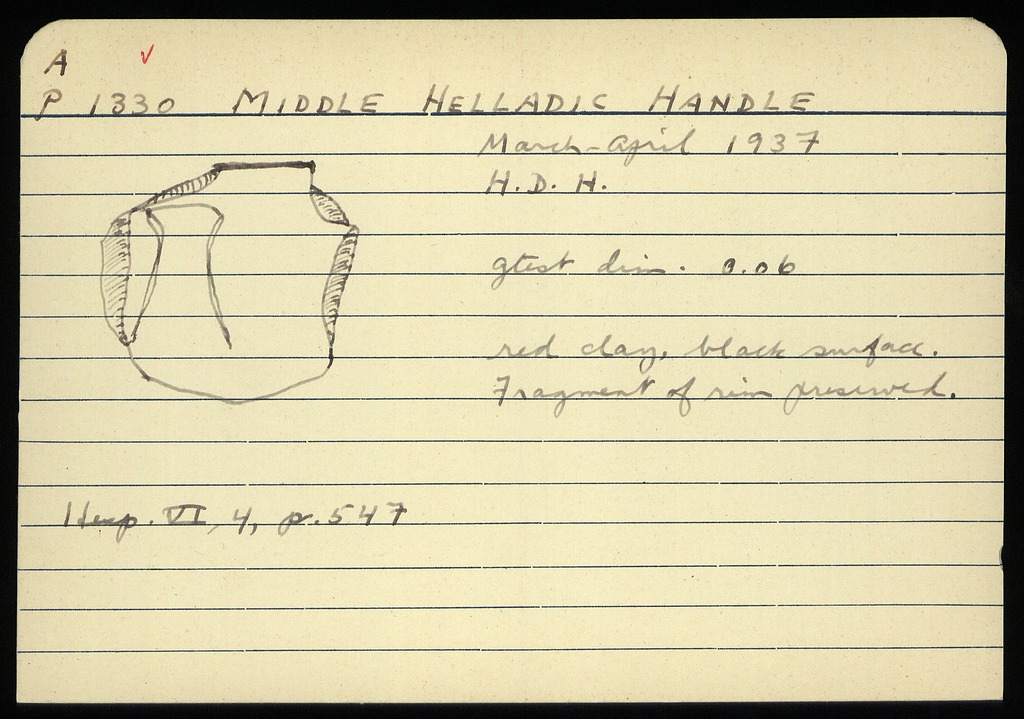 A ✓
P 1330 MIDDLE HELLADIC HANDLE
March-April 1937
H. D. H.
gtest dim. 0.06
red clay, black surface.
Fragment of rim preserved.
Hesp. VI, 4, p. 547